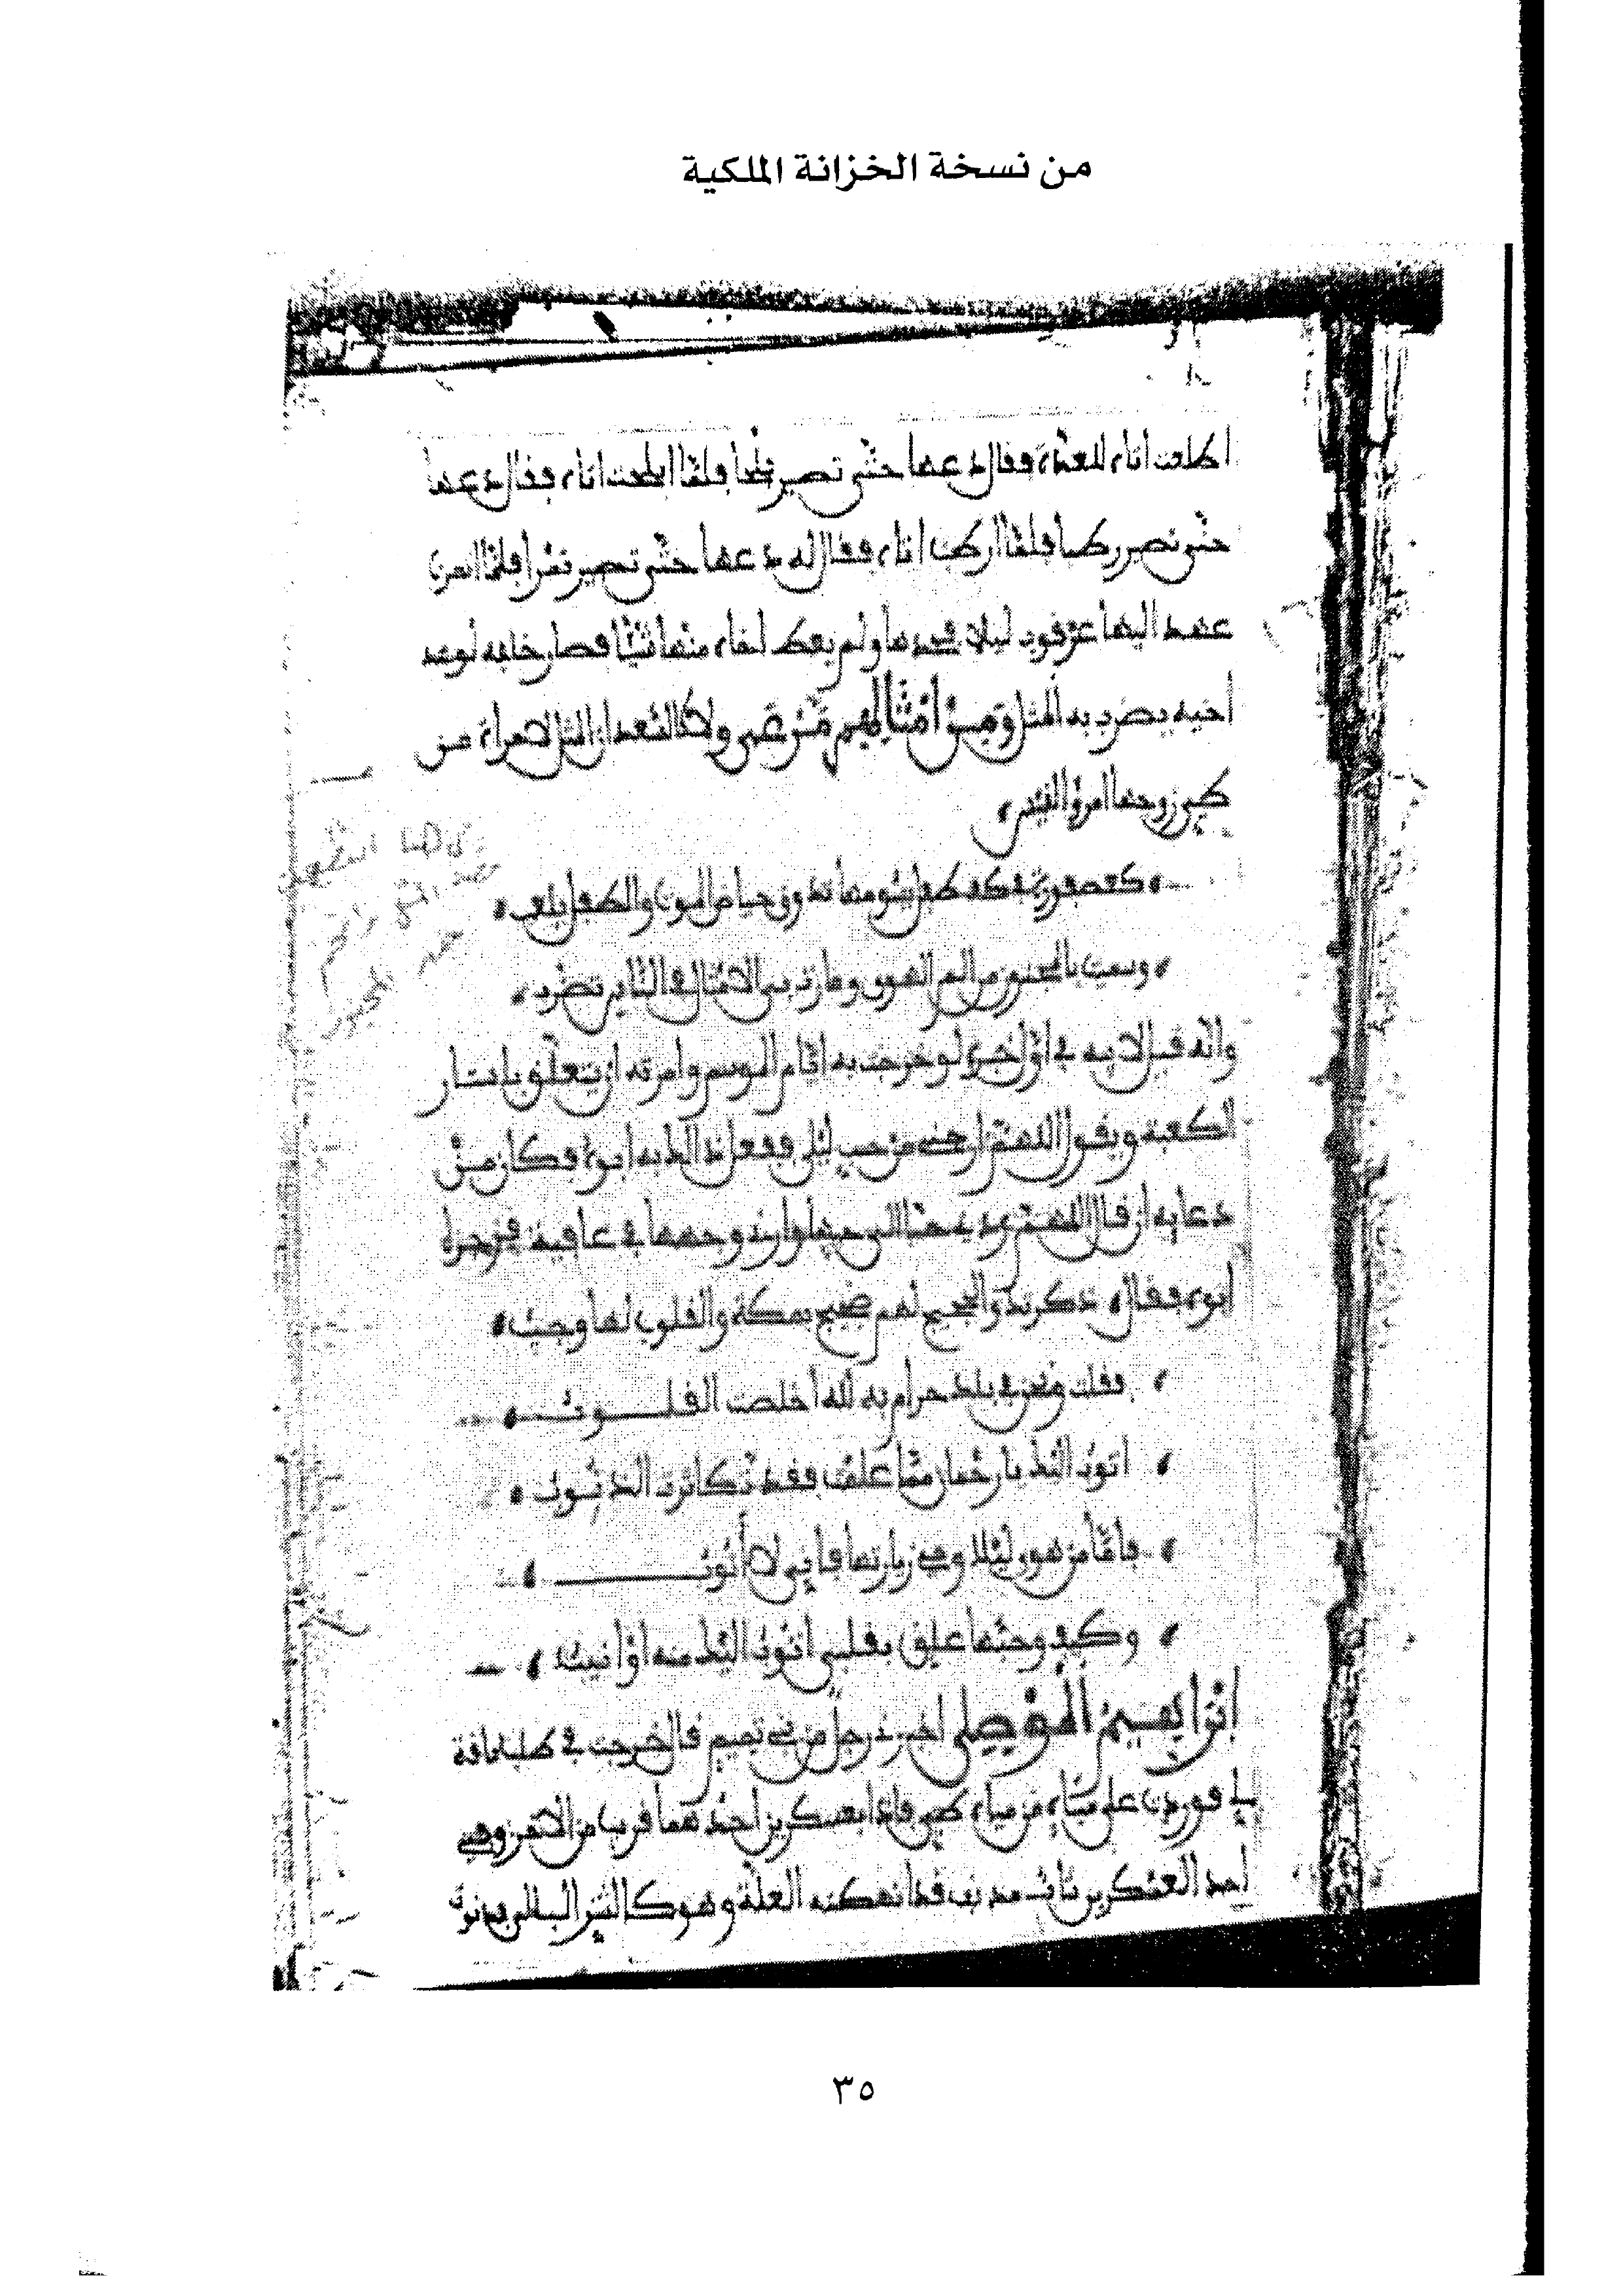 من نسخة الخزانة الملكية
اطلعت اتاه للعدة فقال دعها حتى تصير بلحا فلما ابلحت اتاه فقال دعها
حتى تصير رطبا فلما ارطبت اتاه فقال له دعها حتى تصير تمرا فلما اتمرت
عهد اليها عرقوب ليلا فجدها ولم يعط اخاه منها شيئا فصار خلفه لوعد
اخيه يضرب به المثل ومن أمثالهم مرعى ولا كالسعدان المثل لامرأة من
طيئ زوجها امرؤ القيس
كعصفورة في كف طفل يسومها تذوق حياض الموت والطفل يلعب
وسميت بالمجنون من الم الهوى وصارت بي الامثال في الناس تضرب
وانه قيل لابيه في اول اخرى لو خرجت به ايام الموسم وامرته ان يتعلق باستار
الكعبة ويقول اللهم ارحني من حب ليلى ففعل ذالك به ابوه فكان من
دعايه ان قال اللهم زدني حبا الى حبها وارني وجهها في عافية فزجره
ابوه فقال ذكرتك والحجيج لهم ضجيج بمكة والقلوب لها وجيب
فقلت ونحن في بلد حرام به لله أخلصت القلوب
اتوب اليك يا رحمان مما علمت فقد تكاثرت الذنوب
فأما من هوى ليلى وحب زيارتها فإني لا أتوب
وكيف وحبها علق بقلبي اتوب اليك منه او انيب
ابراهيم الموصلي اخبرني رجل من بني تميم قال خرجت في طلب ناقة
لي فوردت على ماء من مياه طيئ فاذا بعسكرين احدهما قريب من الاخر وفي
احد العسكرين شاب مدنف قد انهكته العلة وهو كالشن البالي فدنوت
٣٥